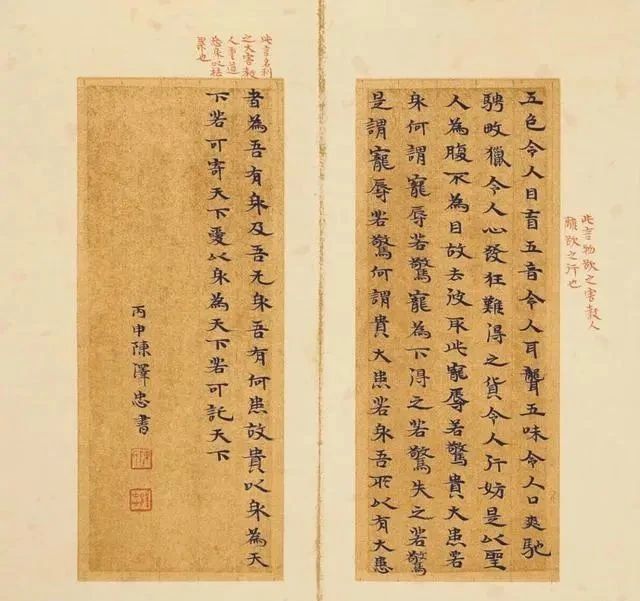 此言物欲之害教人
欲之行也
五色令人目盲五音令人耳聾五味令人口爽馳
騁畋獵令人心發狂難得之貨令人行妨是以聖
人為腹不為目故去彼取此寵辱若驚貴大患若
身何謂寵辱若驚寵為下得之若驚失之若驚
是謂寵辱若驚何謂貴大患若身吾所以有大患
此言名利
之大害教
人重道
忘身以祛
累也
者為吾有身及吾无身吾有何患故貴以身為天
下若可寄天下愛以身為天下若可託天下
丙申陳澤忠書